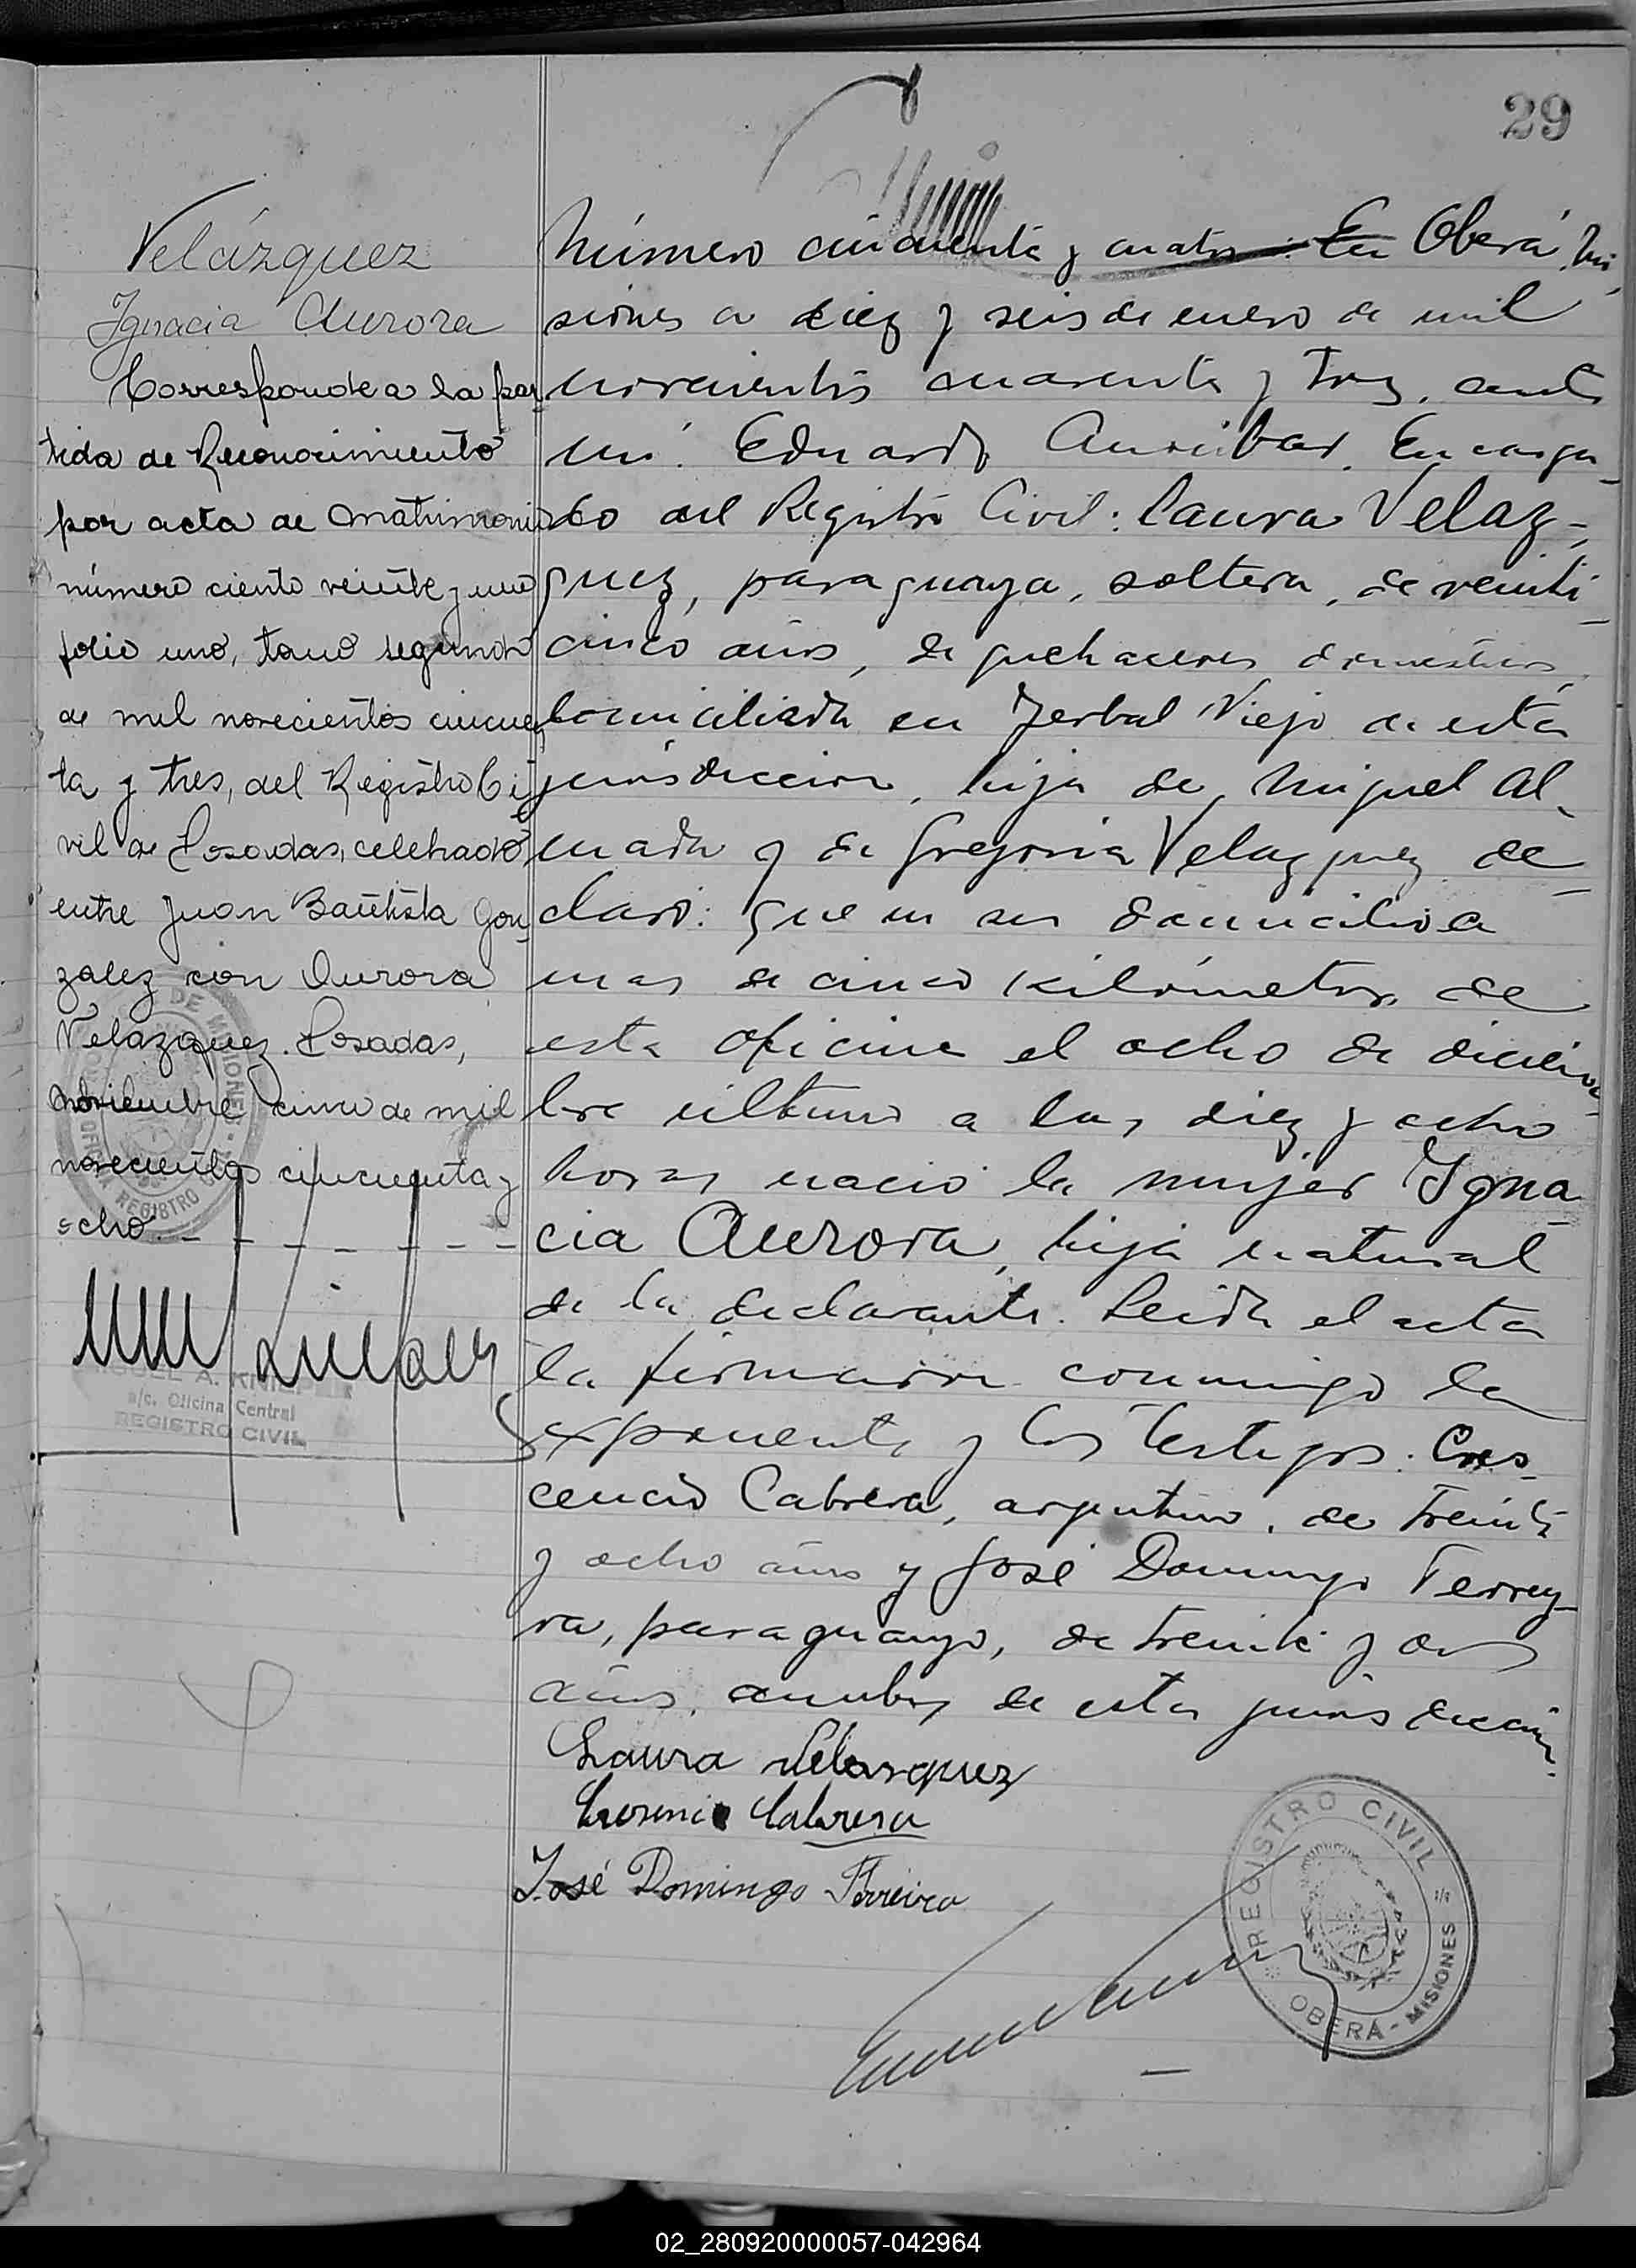 29
Velázquez
Ignacia Aurora
Corresponde a la par-
tida de Reconocimiento
por acta de matrimonio
número ciento veinte y uno
folio uno, tomo segundo
de mil novecientos cincuen-
ta y tres, del Registro Ci-
vil de Posadas, celebrado
entre Juan Bautista Gon-
zalez con Aurora
Velazquez. Posadas,
Noviembre cinco de mil
novecientos cincuenta y
ocho.
MIGUEL A. 
a/c. Oficina Central
REGISTRO CIVIL
Número cincuenta y cuatro. En Oberá, Mi-
siones a diez y seis de enero de mil
novecientos cuarenta y tres, ante
mí Eduardo Encarga-
do del Registro Civil: Laura Velaz-
quez, paraguaya, soltera, de veinti-
cinco años, de quehaceres domésticos,
domiciliada en Yerbal Viejo de esta
jurisdiccion, hija de Miguel Al-
mada y de Gregoria Velazquez de-
claró: que en su domicilio a
mas de cinco kilómetros de
esta oficina el ocho de diciem-
bre último a las diez y ocho
horas nació la mujer Igna-
cia Aurora, hija natural
de la declarante. Leída el acta
la firmaron conmigo la
exponente y los testigos: Cres-
cencio Cabrera, argentino, de treinta
y ocho años y José Domingo Ferrey-
ra, paraguayo, de treinta y dos
años, ambos de esta jurisdicción.
Laura Velasquez
Cresencio Cabrera
José Domingo Ferreira
REGISTRO CIVIL
OBERÁ - MISIONES
02_280920000057-042964